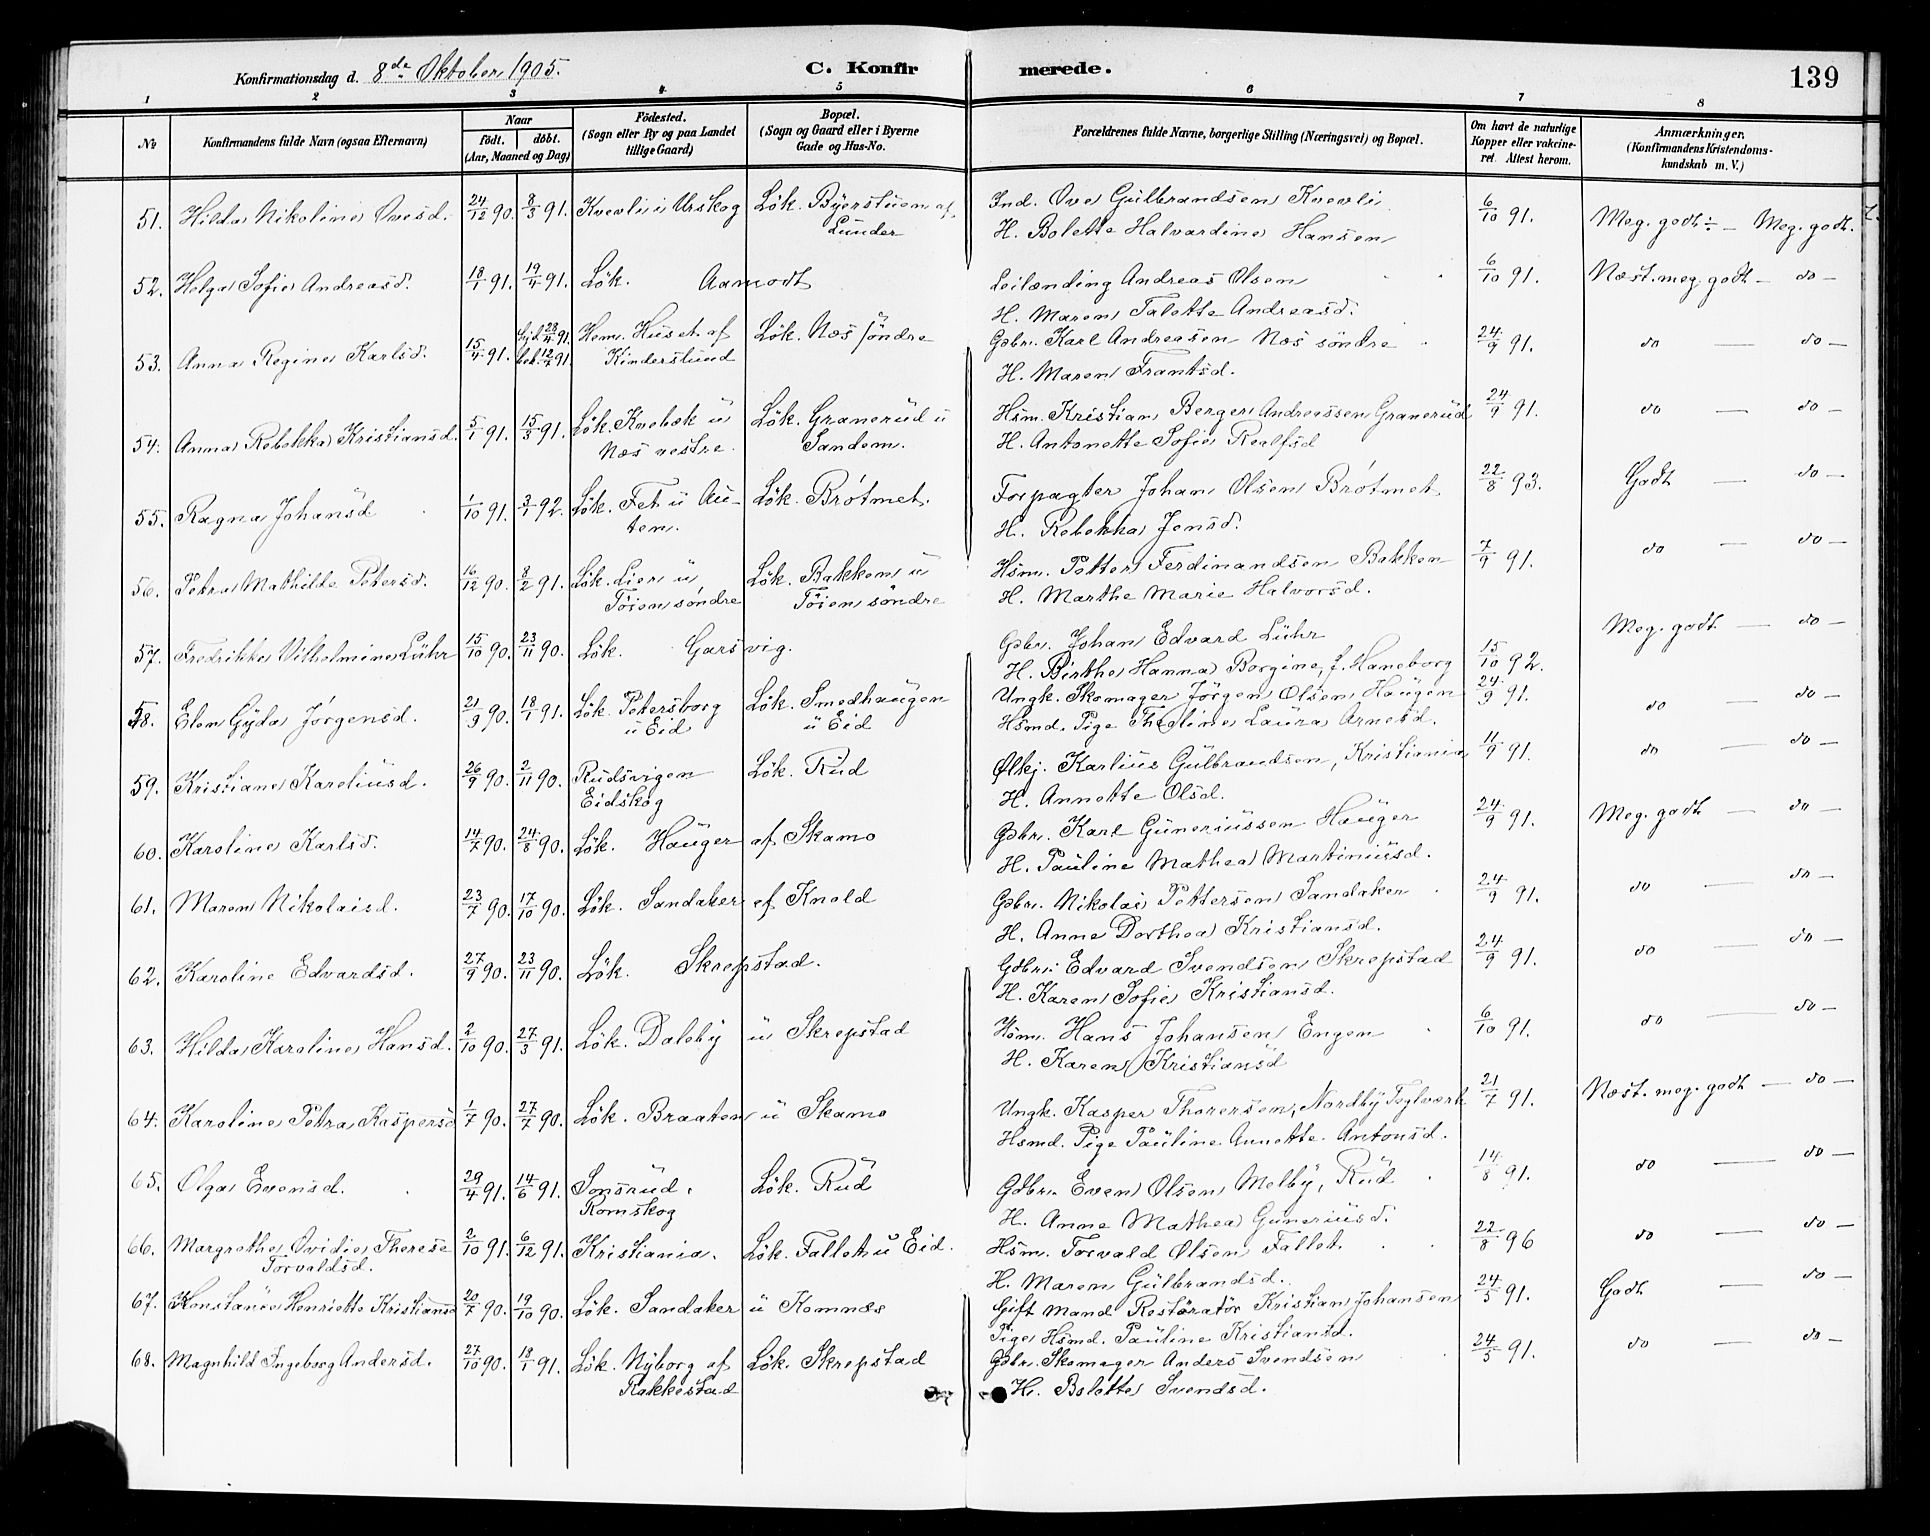 Konfirmationsdag d. 8de Oktober 1905.
C. Konfirmerede.
139
1 2 3 4 5 6 7 8
No
Konfirmandens fulde Navn (ogsaa Efternavn)
Naar
födt. döbt.
(Aar, Maaned og Dag)
Födested.
(Sogn eller By og paa Landet
tillige Gaard)
Bopæl.
(Sogn og Gaard eller i Byerne
Gade og Hus-No.
Forældrenes fulde Navne, borgerlige Stilling (Næringsvei) og Bopæl.
Om havt de naturlige
Kopper eller vakcine-
ret. Attest herom.
Anmærkninger.
(Konfirmandens Kristendoms-
kundskab m. V.)
51. Hilda Nikoline Ovesd. 24/12 90. 8/3 91. Kvevli i Urskog Løk. Byerstuen af Lunder
Ind. Ove Gulbrandsen Kvevli
H. Bolette Halvardine Hansen
6/10 91. Meg. godt ÷ — Meg. godt.
52. Helga Sofie Andreasd. 18/1 91. 19/4 91. Løk. Aamodt
Leilænding Andreas Olsen
H. Maren Talette Andreasd.
6/10 91. Næst. meg. godt — do —
53. Anna Regine Karlsd. 15/4 91. Hjd. 28/4 91. bek. 12/7 91. Hem. Huset af Kinderstuad Løk. Næs søndre
Gdbr. Karl Andreasen Næs søndre
H. Maren Frantsd.
24/9 91. do — do —
54. Anna Rebekka Kristiansd. 5/1 91. 15/3 91. Løk. Kvebæk u Næs vestre. Løk. Granerud u Sandem.
Hsm. Kristian Berger Andreassen Granerud
H. Antonette Sofie Realfsd
24/9 91. do — do —
55. Ragna Johansd 1/10 91. 3/1 92. Løk. Fet u Auten. Løk. Brøtmet.
Forpagter Johan Olsen Brøtmet
H. Rebekka Jensd.
22/8 93. Godt — do —
56. Petra Mathilde Petersd. 16/12 90. 8/2 91. Løk. Lier u Tøien søndre Løk. Bakken u Tøien søndre
Hsm. Petter Ferdinandsen Bakken
H. Marthe Marie Halvorsd.
7/9 91. do — do —
57. Fredrikke Vilhelmine Lühr 15/10 90. 23/11 90. Løk. Garsvig.
Gdbr. Johan Edvard Lühr
H. Birthe Hanna Borgine, f. Haneborg
15/10 92. Meg. godt — do —
58. Elen Gyda Jørgensd. 21/9 90. 18/1 91. Løk. Petersborg u Eid Løk. Smedhaugen u Eid
Ungk. Skomager Jörgen Olsen Haugen
Hsmd. Pige Theoline Laura Arnesd.
24/9 91. do — do —
59. Kristiane Kareliusd. 26/9 90. 2/11 90. Rudsvigen Eidskog Løk. Rud
Ølkj. Karlius Gulbrandsen, Kristiania
H. Annette Olsd.
11/9 91. do — do —
60. Karoline Karlsd. 14/7 90. 24/8 90. Løk. Hauger af Skamo
Gdbr. Karl Guneriussen Hauger
H. Pauline Mathea Martiniusd.
24/9 91. Meg. godt — do —
61. Maren Nikolaisd. 23/7 90. 17/10 90. Løk. Sandaker af Knold
Gdbr. Nikolai Pettersen Sandaker
H. Anne Dorthea Kristiansd.
24/9 91. do — do —
62. Karoline Edvardsd. 27/9 90. 23/11 90. Løk. Skrepstad.
Gdbr. Edvard Svendsen Skrepstad
H. Karen Sofie Kristiansd.
24/9 91. do — do —
63. Hilda Karoline Hansd. 2/10 90. 27/3 91. Løk. Daleby u Skrepstad
Hsm. Hans Johansen Engen
H. Karen Kristiansd
6/10 91. do — do —
64. Karoline Petra Kaspersd 1/7 90. 27/7 90. Løk. Braaten u Skamo
Ungk. Kasper Thoresen, Nordby Teglværk
Hsmd. Pige Pauline Annette Antonsd.
21/7 91. Næst. meg. godt — do —
65. Olga Evensd. 29/4 91. 14/6 91. Smsrud. Romskog Løk. Rud
Gdbr. Even Olsen Melby, Rud
H. Anne Mathea Guneriusd.
14/8 91. do — do —
66. Margrethe Ovidie Therese Torvaldsd. 2/10 91. 6/12 91. Kristiania. Løk. Fallet u Eid.
Hsm. Torvald Olsen Fallet.
H. Maren Gulbrandsd.
22/8 96 do — do —
67. Konstance Henriette Kristiansd 20/7 90. 19/10 90. Løk. Sandaker u Komnæs
Gift Mand Restøratør Kristian Johansen
Pige Hsmd. Pauline Kristiansd.
24/5 91. Godt — do —
68. Magnhild Ingeborg Andersd. 27/10 90. 18/1 91. Løk. Nyborg af Rakkestad Løk. Skrepstad
Gdbr. Skomager Anders Svendsen
H. Bolette Svendsd.
24/5 91. do — do —